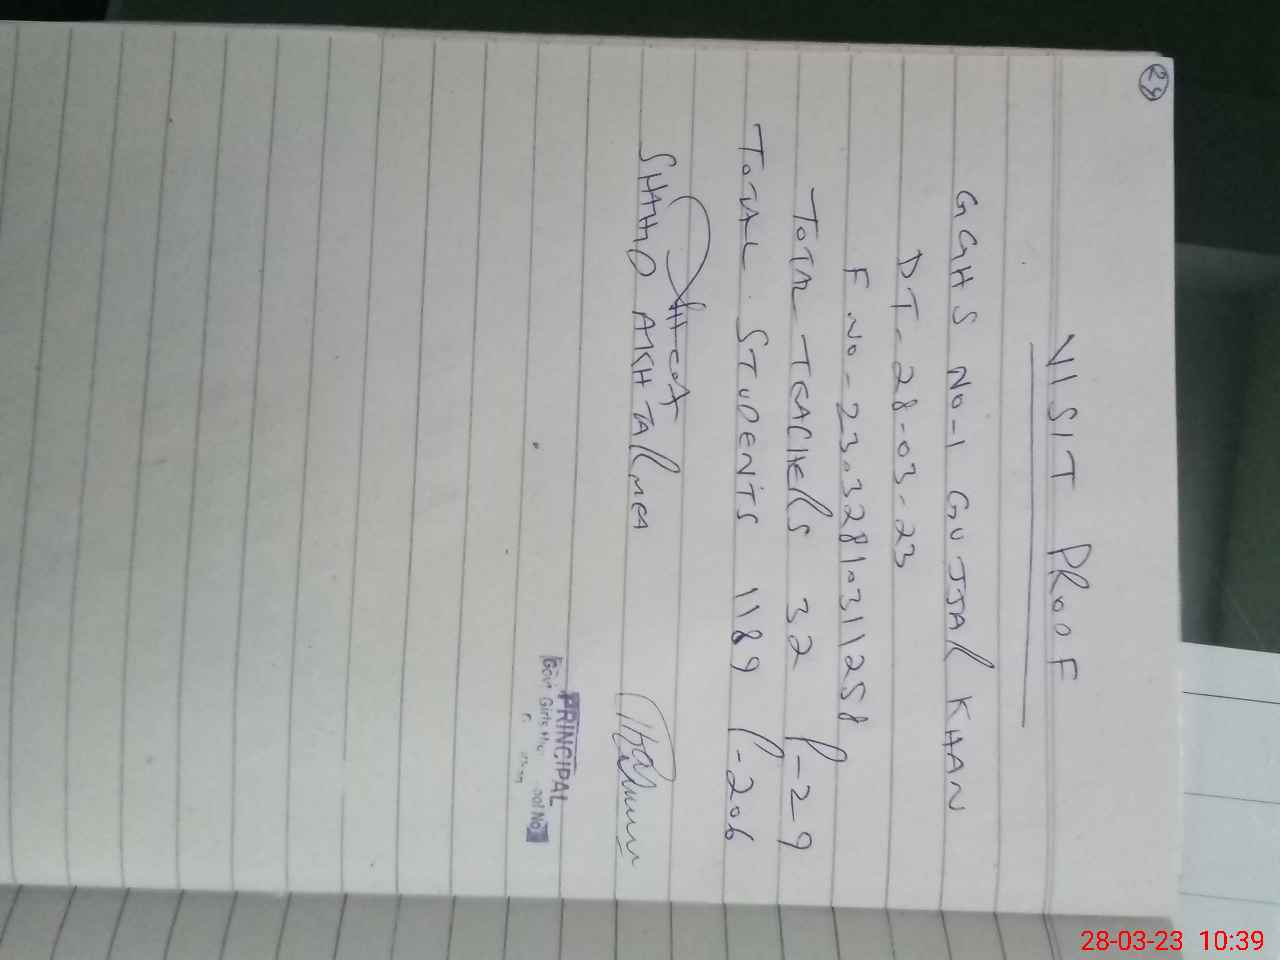 24
VISIT PROOF
GGHS NO-1 GUJJAR KHAN
DT-28-03-23
F.NO-23.3281.0311258
TOTAL TEACHERS 32 P-29
TOTAL STUDENTS 1189 P-206
SHAHID AKHTAR MEA
PRINCIPAL
Govt Girls No
28-03-23 10:39